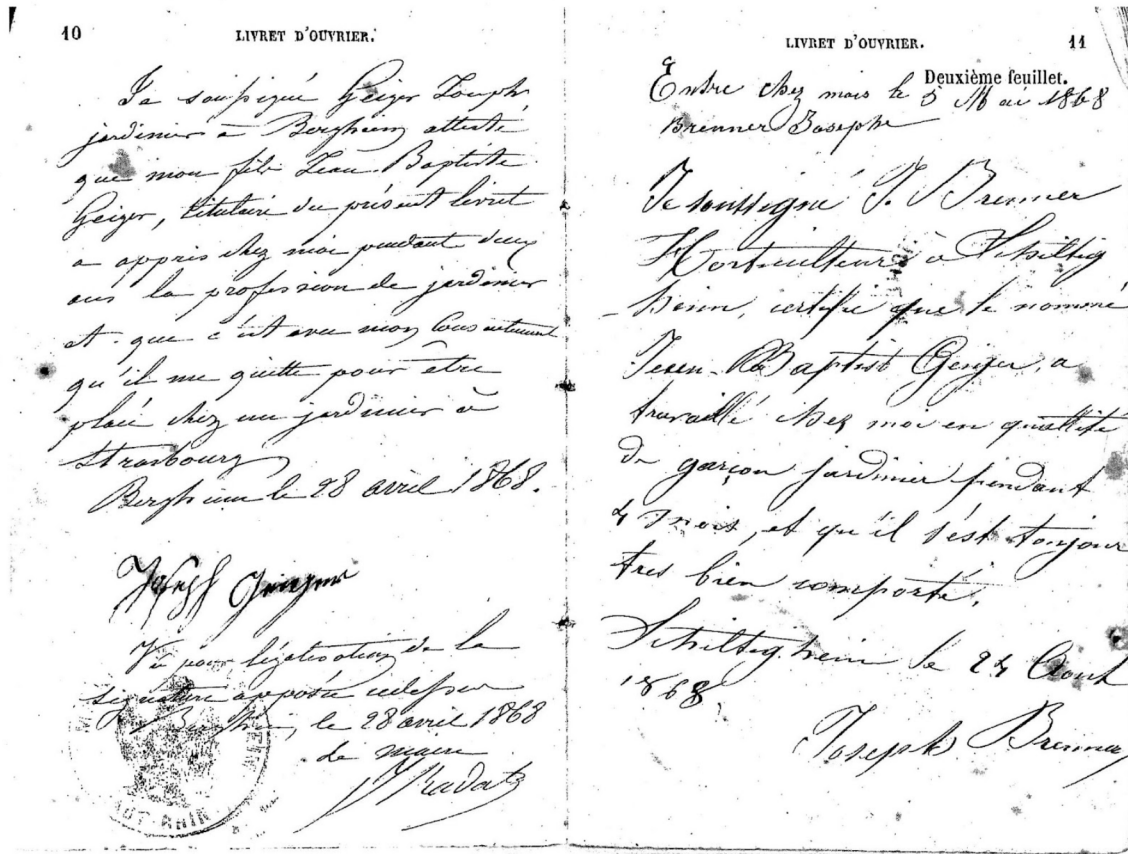 10
LIVRET D'OUVRIER.
Je soussigné Geiger Joseph
jardinier à Bergheim atteste
que mon fils Jean Baptiste
Geiger, titulaire du présent livret
a appris chez moi pendant deux
ans la profession de jardinier
et que c'est avec mon consentement
qu'il me quitte pour être
placé chez un jardinier à
Strasbourg
Bergheim le 28 avril 1868.
Joseph Geiger
Vu pour légalisation de la
signature apposée
Bergheim, le 28 avril 1868
le maire
HAUT-RHIN
LIVRET D'OUVRIER.
11
Deuxième feuillet.
Entre chez mois le 5 Mai 1868
Brenner Josephe
Je soussigné J. Brenner
Horticulteur à Schiltig
-heim, certifie que le nommé
Jean-Baptist Geiger, a
travaillé chez moi en quallité
de garçon jardinier pendant
4 mois, et qu'il s'est toujour
tres bien comporté.
Schiltigheim le 24 Aout
1868
Joseph Brenner